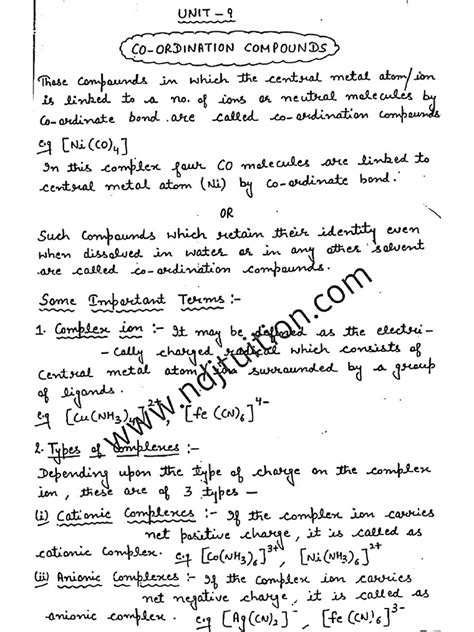 UNIT - 9
CO-ORDINATION COMPOUNDS
These compounds in which the central metal atom/ion
is linked to a no. of ions or neutral molecules by
co-ordinate bond are called co-ordination compounds
eg [Ni(CO)4]
In this complex four CO molecules are linked to
central metal atom (Ni) by co-ordinate bond.
OR
Such compounds which retain their identity even
when dissolved in water or in any other solvent
are called co-ordination compounds.
Some Important Terms :-
1. Complex ion :- It may be defined as the electri-
- cally charged radical which consists of
central metal atom/ion surrounded by a group
of ligands.
eg [Cu(NH3)4]2+, [fe(CN)6]4-
2. Types of Complexes :-
Depending upon the type of charge on the complex
ion, these are of 3 types —
(i) Cationic Complexes :- If the complex ion carries
net positive charge, it is called as
cationic complex. eg [Co(NH3)6]3+, [Ni(NH3)6]2+
(ii) Anionic Complexes :- If the complex ion carries
net negative charge, it is called as
anionic complex. eg [Ag(CN)2]-, [fe(CN)6]3-
www.ndjtuition.com